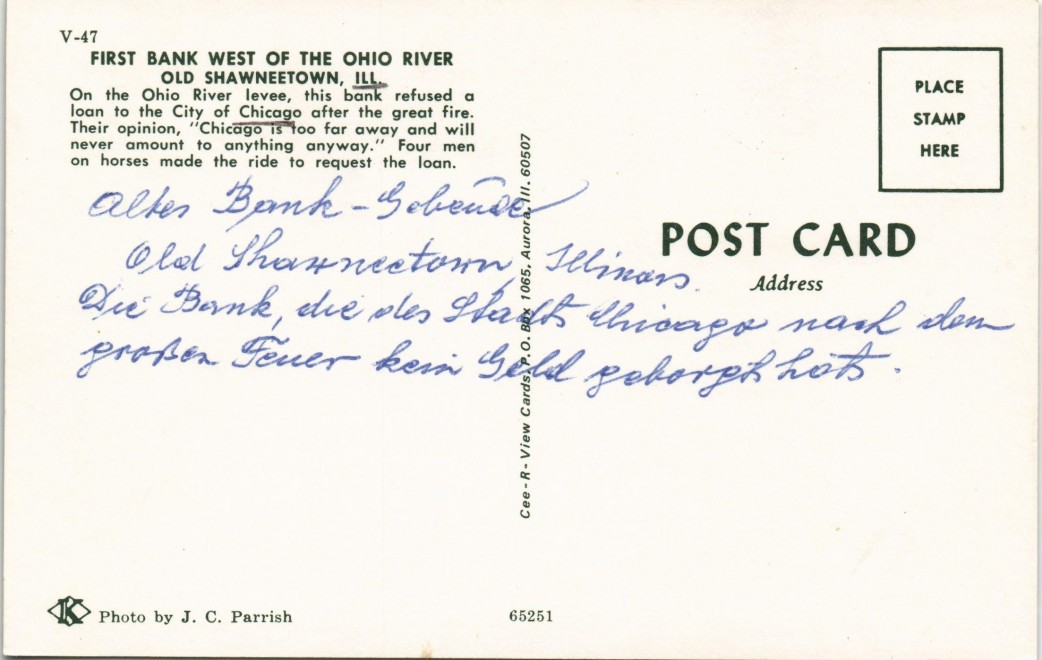 V-47
FIRST BANK WEST OF THE OHIO RIVER
OLD SHAWNEETOWN, ILL.
On the Ohio River levee, this bank refused a
loan to the City of Chicago after the great fire.
Their opinion, "Chicago is too far away and will
never amount to anything anyway." Four men
on horses made the ride to request the loan.
PLACE
STAMP
HERE
POST CARD
Address
Altes Bank-Gebäude
Old Shawneetown, Illinois.
Die Bank, die des Stadt Chicago nach dem
großen Feuer kein Geld geborgt hat.
Cee-R-View Cards, P.O. Box 1065, Aurora, Ill. 60507
K Photo by J. C. Parrish
65251